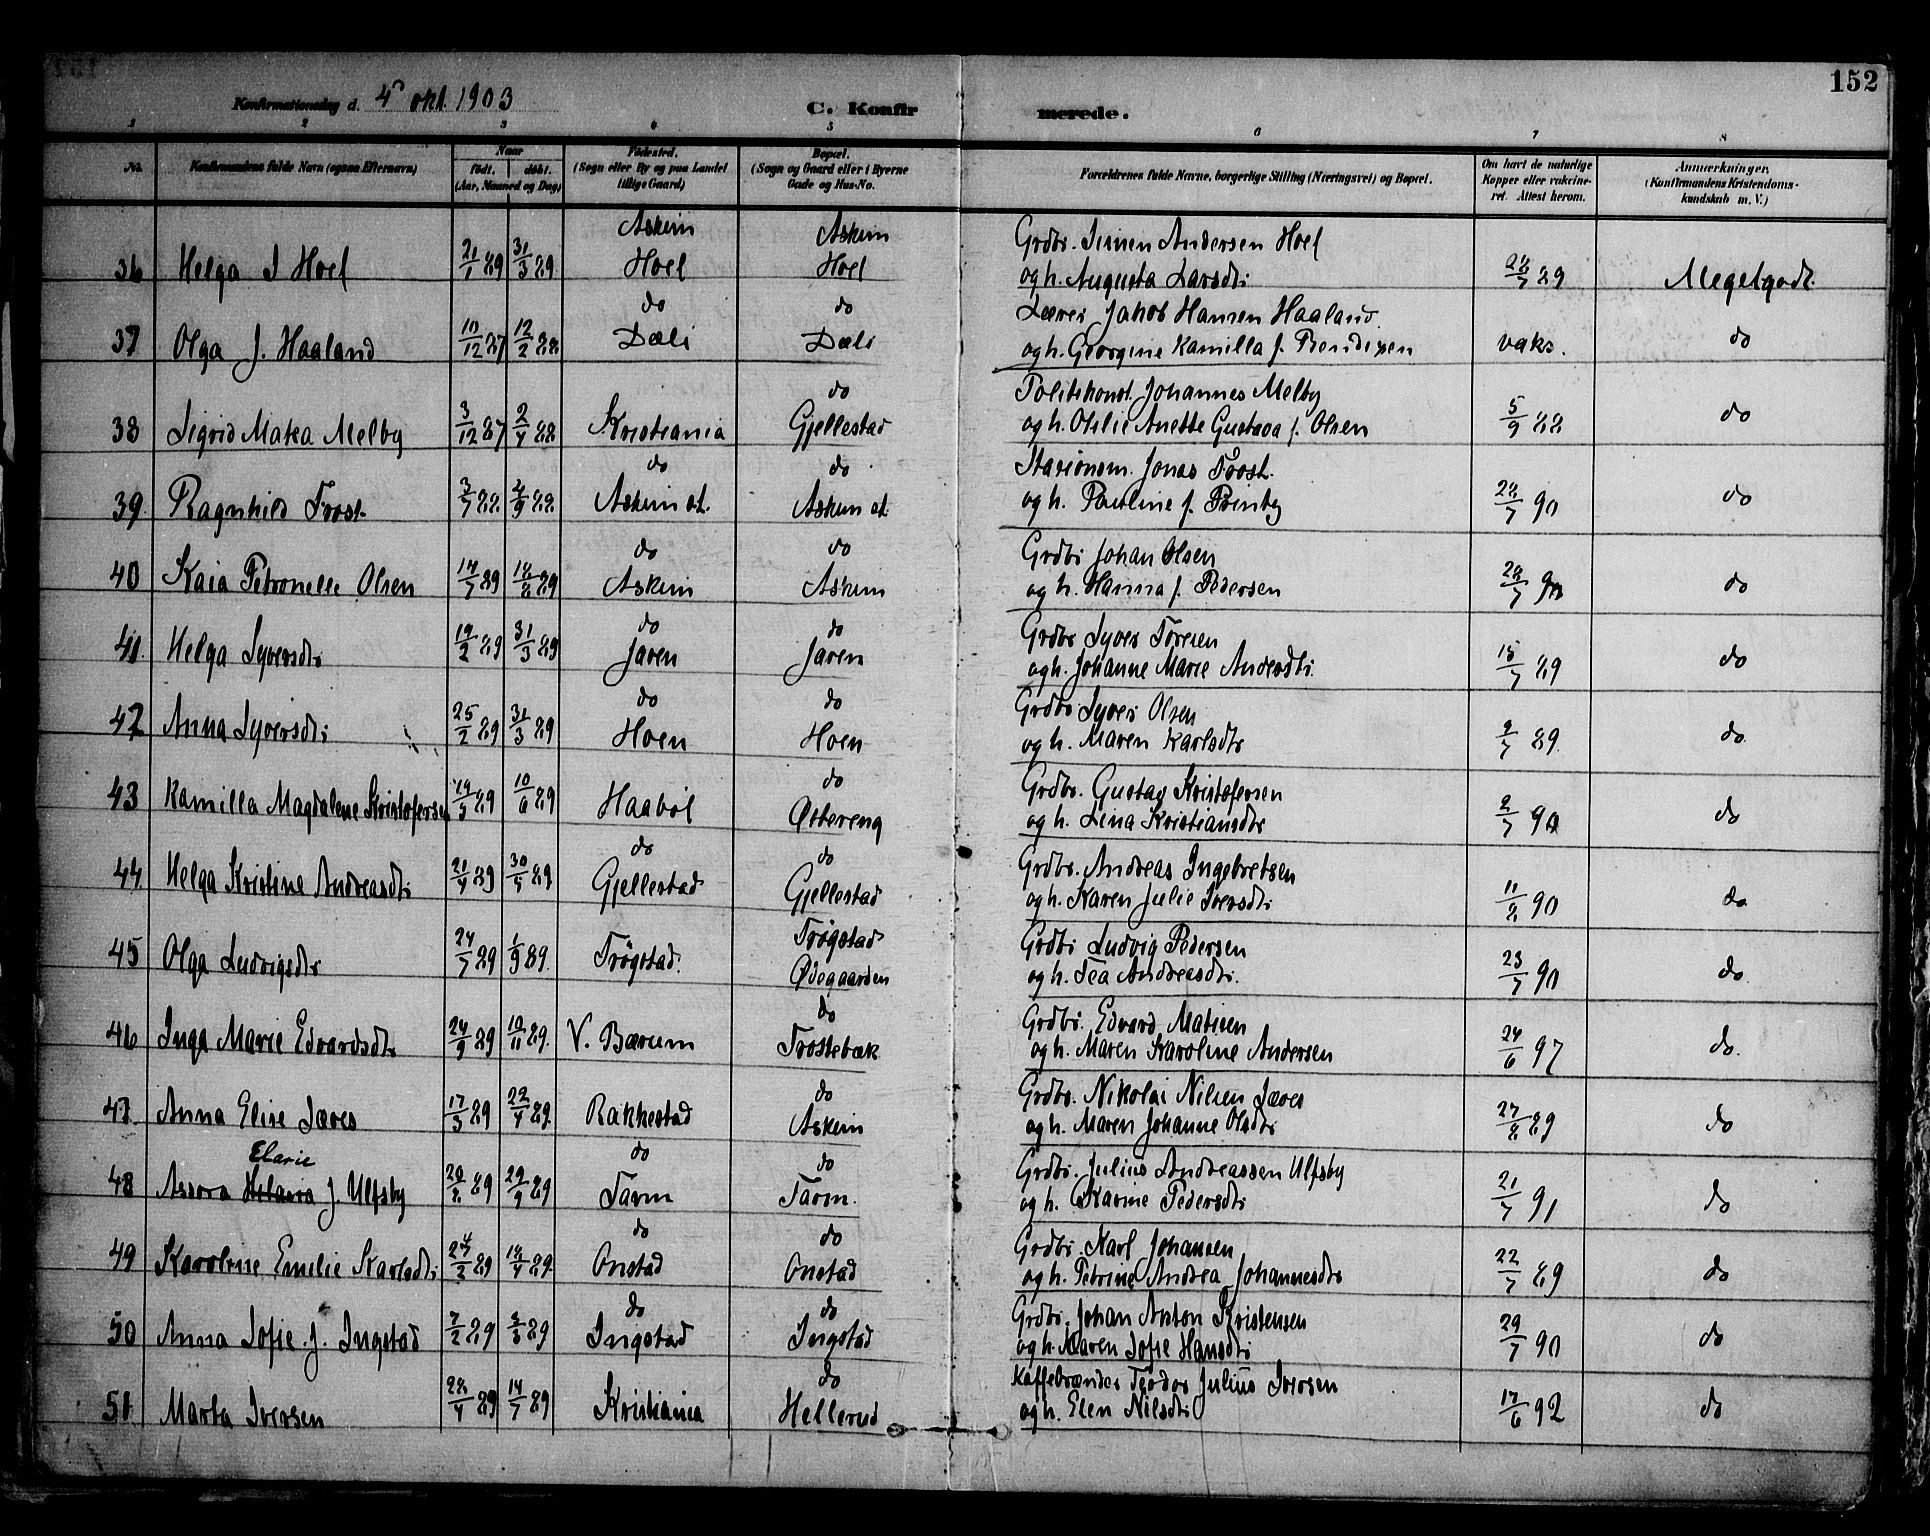 152
Konfirmationsdag d. 4de okt 1903
C. Konfirmerede.
1 2 3 4 5 6 7 8
No. Konfirmandens fulde Navn (ogsaa Efternavn) Naar født. døbt. (Aar, Maaned og Dag) Fødested. (Sogn eller By og paa Landet tillige Gaard) Bopæl. (Sogn og Gaard eller i Byerne Gade og Hus-No. Forældrenes fulde Navne, borgerlige Stilling (Næringsvei) og Bopæl. Om havt de naturlige Kopper eller vakcineret. Attest herom. Anmærkninger. (Konfirmandens Kristendomskundskab m. V.)
Askim Askim Grdbr. Simen Andersen Hoel
36 Helga S Hoel 21/1 89 31/3 89 Hoel Hoel og h. Augusta Larsdtr 28/7 89 Megetgodt.
do do Lærer Jakob Hansen Haaland.
37 Olga J. Haaland 10/12 87 12/2 88 Dæli Dæli og h. Georgine Kamilla f. Bendixen vaks. do
do Politikonst. Johannes Melby
38 Sigrid Matea Melby 3/12 87 2/4 88 Kristiania Gjellestad og h. Otilie Anette Gustava f. Olsen 5/9 88 do
do do Stasionsm. Jonas Trost.
39. Ragnhild Trost 3/7 88 4/9 88 Askim st. Askim st. og h. Pauline f. Brinby 28/7 90 do
do do Grdbr Johan Olsen
40 Kaia Petronelle Olsen 14/7 89 18/8 89 Askim Askim og h. Hanna f. Pedersen 28/7 90 do
do do Grdbr Syver Toresen
41. Helga Syversdtr 19/2 89 31/3 89 Jaren Jaren og h. Johanne Marie Andersdtr. 15/7 89 do
do do Grdbr Syver Olsen
42 Anna Syversdtr 25/2 89 31/3 89 Hoen Hoen og h. Maren Karlsdtr 9/7 89. do
do Grdbr. Gustav Kristofersen
43 Kamilla Magdalene Kristofersen 19/3 89 10/6 89 Haabøl Østereng og h. Lina Kristiansdtr 2/7 90 do
do do Grdbr. Andreas Ingebretsen
44 Helga Kristine Andreasdtr 21/4 89 30/5 89 Gjellestad Gjellestad og h. Karen Julie Iversdtr 11/8 90 do
Trøgstad Grdbr Ludvig Pedersen
45 Olga Ludvigsdtr 24/7 89 1/9 89. Trøgstad. Ødegaarden og h. Tea Andreasdtr. 23/7 90 do
do Grdbr. Edvard Matisen
46 Inga Marie Edvardsdtr 24/9 89 10/11 89. V. Bærum Trostebæk og h. Maren Karoline Andersen 24/6 97 do.
do Grdbr. Nikolai Nilsen Jæver
47. Anna Elise Jæver 17/3 89 22/4 89. Rakkestad Askim og h. Maren Johanne Olsdtr 27/8 89 do
Elarie do do Grdbr. Julius Andreassen Ulfsby
48 Assora Helaria J Ulfsby 20/8 89 29/9 89 Tarm Tarm. og h. Karine Pedersdtr 21/7 91 do
do do Grdbr. Karl Johansen
49 Karoline Emilie Karlsdtr 24/2 89 18/4 89. Onstad Onstad og h. Petrine Andrea Johannesdtr 22/7 89 do
do do Grdbr. Johan Anton Kristensen
50 Anna Sofie. J. Ingstad 7/2 89 3/3 89 Ingstad Ingstad og h. Maren Sofie Hansdtr 29/7 90 do
do Kaffebrænder Teodor Julius Iversen
51. Marta Iversen 28/4 89 14/7 89 Kristiania Hellerud og h. Elen Nilsdtr 17/6 92 do